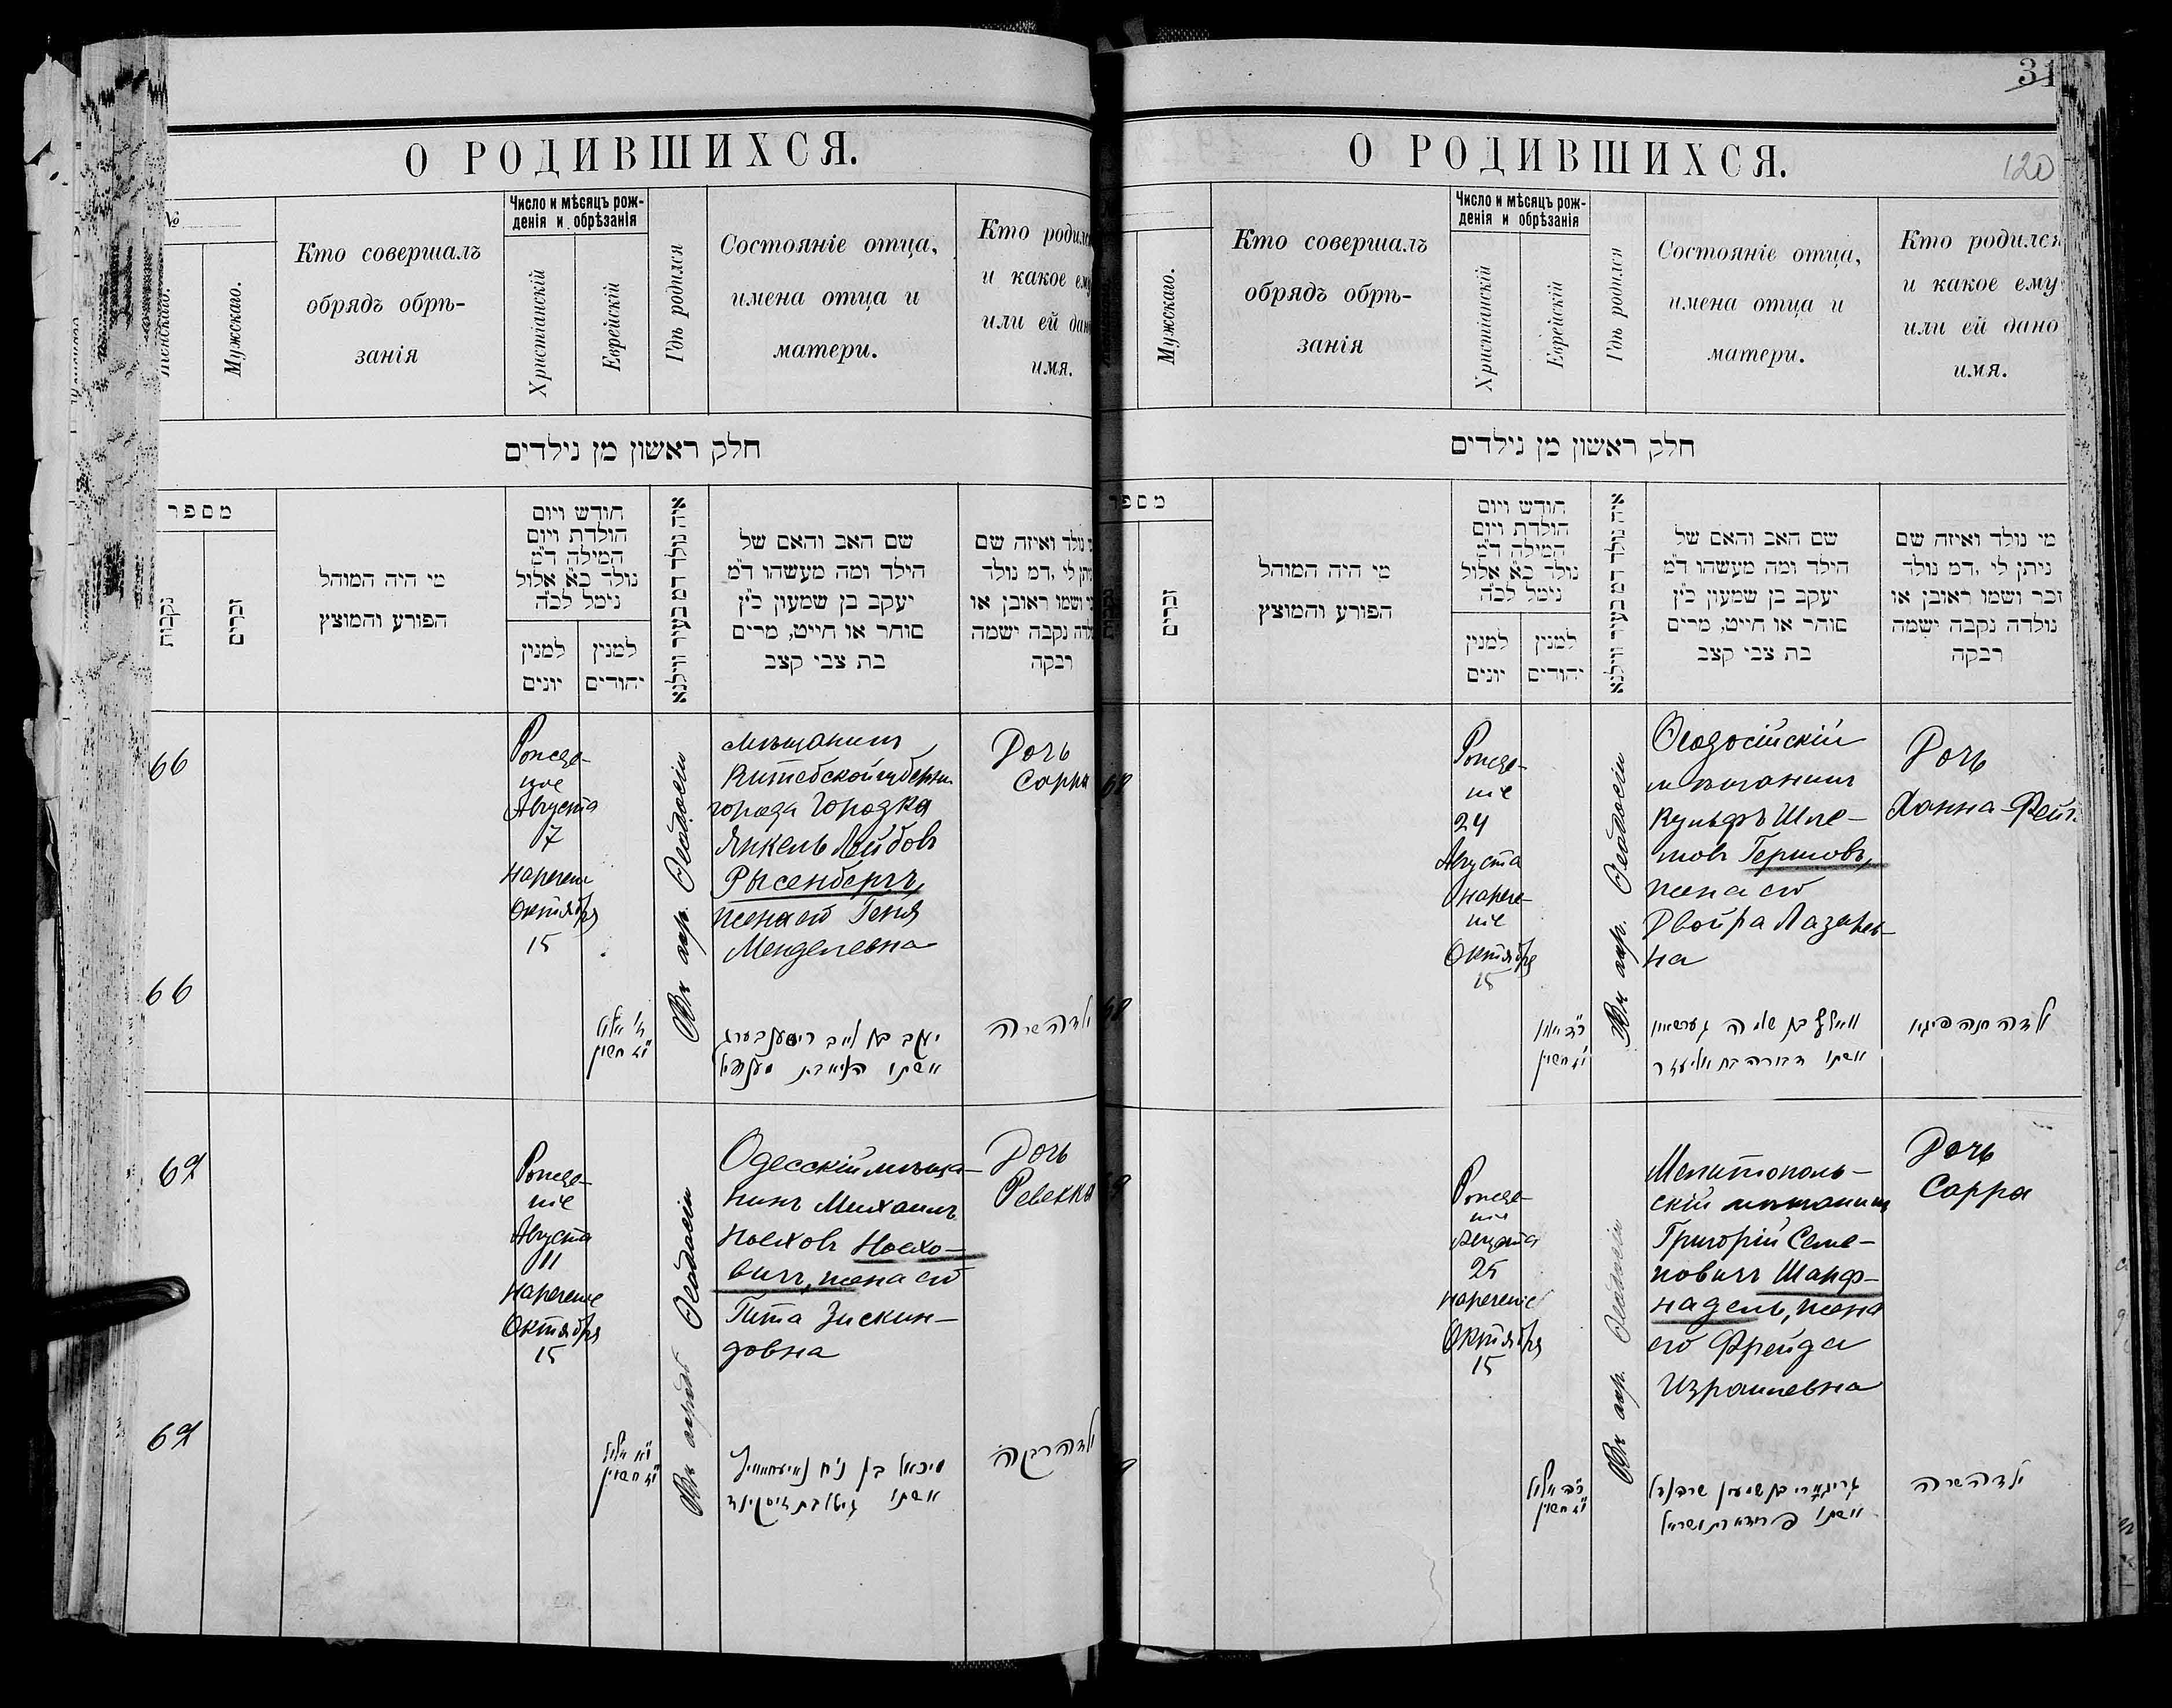 О РОДИВШИХСЯ.
№
Женскаго.
Мужскаго.
Кто совершалъ
обрядъ обрѣ-
занія
Число и мѣсяцъ рож-
денія и обрѣзанія
Христіанскій
Еврейскій
Гдѣ родился
Состояніе отца,
имена отца и
матери.
Кто родился
и какое ему
или ей дано
имя.
חלק ראשון מן נילדים
מספר
נקבות
זכרים
מי היה המוהל
הפורע והמוצץ
חודש ויום
הולדת ויום
המילה ד״מ
נולד כ״א אלול
נימל לכ״ה
למנין
יונים
למנין
יהודים
איה נולד דמ בעיר ווילנא
שם האב והאם של
הילד ומה מעשהו ד״מ
יעקב בן שמעון כ״ץ
סוחר או חייט, מרים
בת צבי קצב
נולד ואיזה שם
ניתן לי ,דמ נולד
ושמו ראובן או
נולדה נקבה ישמה
רבקה
66
Рожде-
ніе
Августа
7
Нареченіе
Октября
15
Въ гор. Ѳеодосіи
Мѣщанинъ
Витебской губерніи
города Городка
Янкель Лейбовъ
Рысенбергъ,
жена его Геня
Менделевна
Дочь
Сарра
66
ז׳ אלול
י״ד חשון
יעקב בן לייב ריסענבערג
אשתו העניא בת מענדיל
ילדה שרה
67
Рожде-
ніе
Августа
11
Нареченіе
Октября
15
Въ городѣ Ѳеодосіи
Одесскій мѣща-
нинъ Михаилъ
Ноеховъ Ноехо-
вичъ, жена его
Гита Зискин-
довна
Дочь
Ревекка
67
י״א אלול
י״ד חשון
מיכאל בן נח נאיעחאוויץ
אשתו גיטל בת זיסקינד
ילדה רבקה
31
О РОДИВШИХСЯ.
120
Мужскаго.
Кто совершалъ
обрядъ обрѣ-
занія
Число и мѣсяцъ рож-
денія и обрѣзанія
Христіанскій
Еврейскій
Гдѣ родился
Состояніе отца,
имена отца и
матери.
Кто родился
и какое ему
или ей дано
имя.
חלק ראשון מן נילדים
מספר
נקבות
זכרים
מי היה המוהל
הפורע והמוצץ
חודש ויום
הולדת ויום
המילה ד״מ
נולד כ״א אלול
נימל לכ״ה
למנין
יונים
למנין
יהודים
איה נולד דמ בעיר ווילנא
שם האב והאם של
הילד ומה מעשהו ד״מ
יעקב בן שמעון כ״ץ
סוחר או חייט, מרים
בת צבי קצב
מי נולד ואיזה שם
ניתן לי ,דמ נולד
זכר ושמו ראובן או
נולדה נקבה ישמה
רבקה
68
Рожде-
ніе
24
Августа
Нарече-
ніе
Октября
15
Въ гор. Ѳеодосіи
Ѳеодосійскій
мѣщанинъ
Вульфъ Шле-
мовъ Гершовъ,
жена его
Двойра Лазарев-
на
Дочь
Ханна-Фейга
68
כ״ד אלול
י״ד חשון
וואלף בן שלמה גערשאוו
אשתו דבורה בת אליעזר
ילדה חנה פייגא
69
Рожде-
ніе
Августа
25
Нареченіе
Октября
15
Въ гор. Ѳеодосіи
Мелитополь-
скій мѣщанинъ
Григорій Семе-
новичъ Шарф-
надель, жена
его Фрейда
Израилевна
Дочь
Сарра
כ״ה אלול
י״ד חשון
גריגארי בן שמעון שרפנדל
אשתו פריידא בת ישראל
ילדה שרה